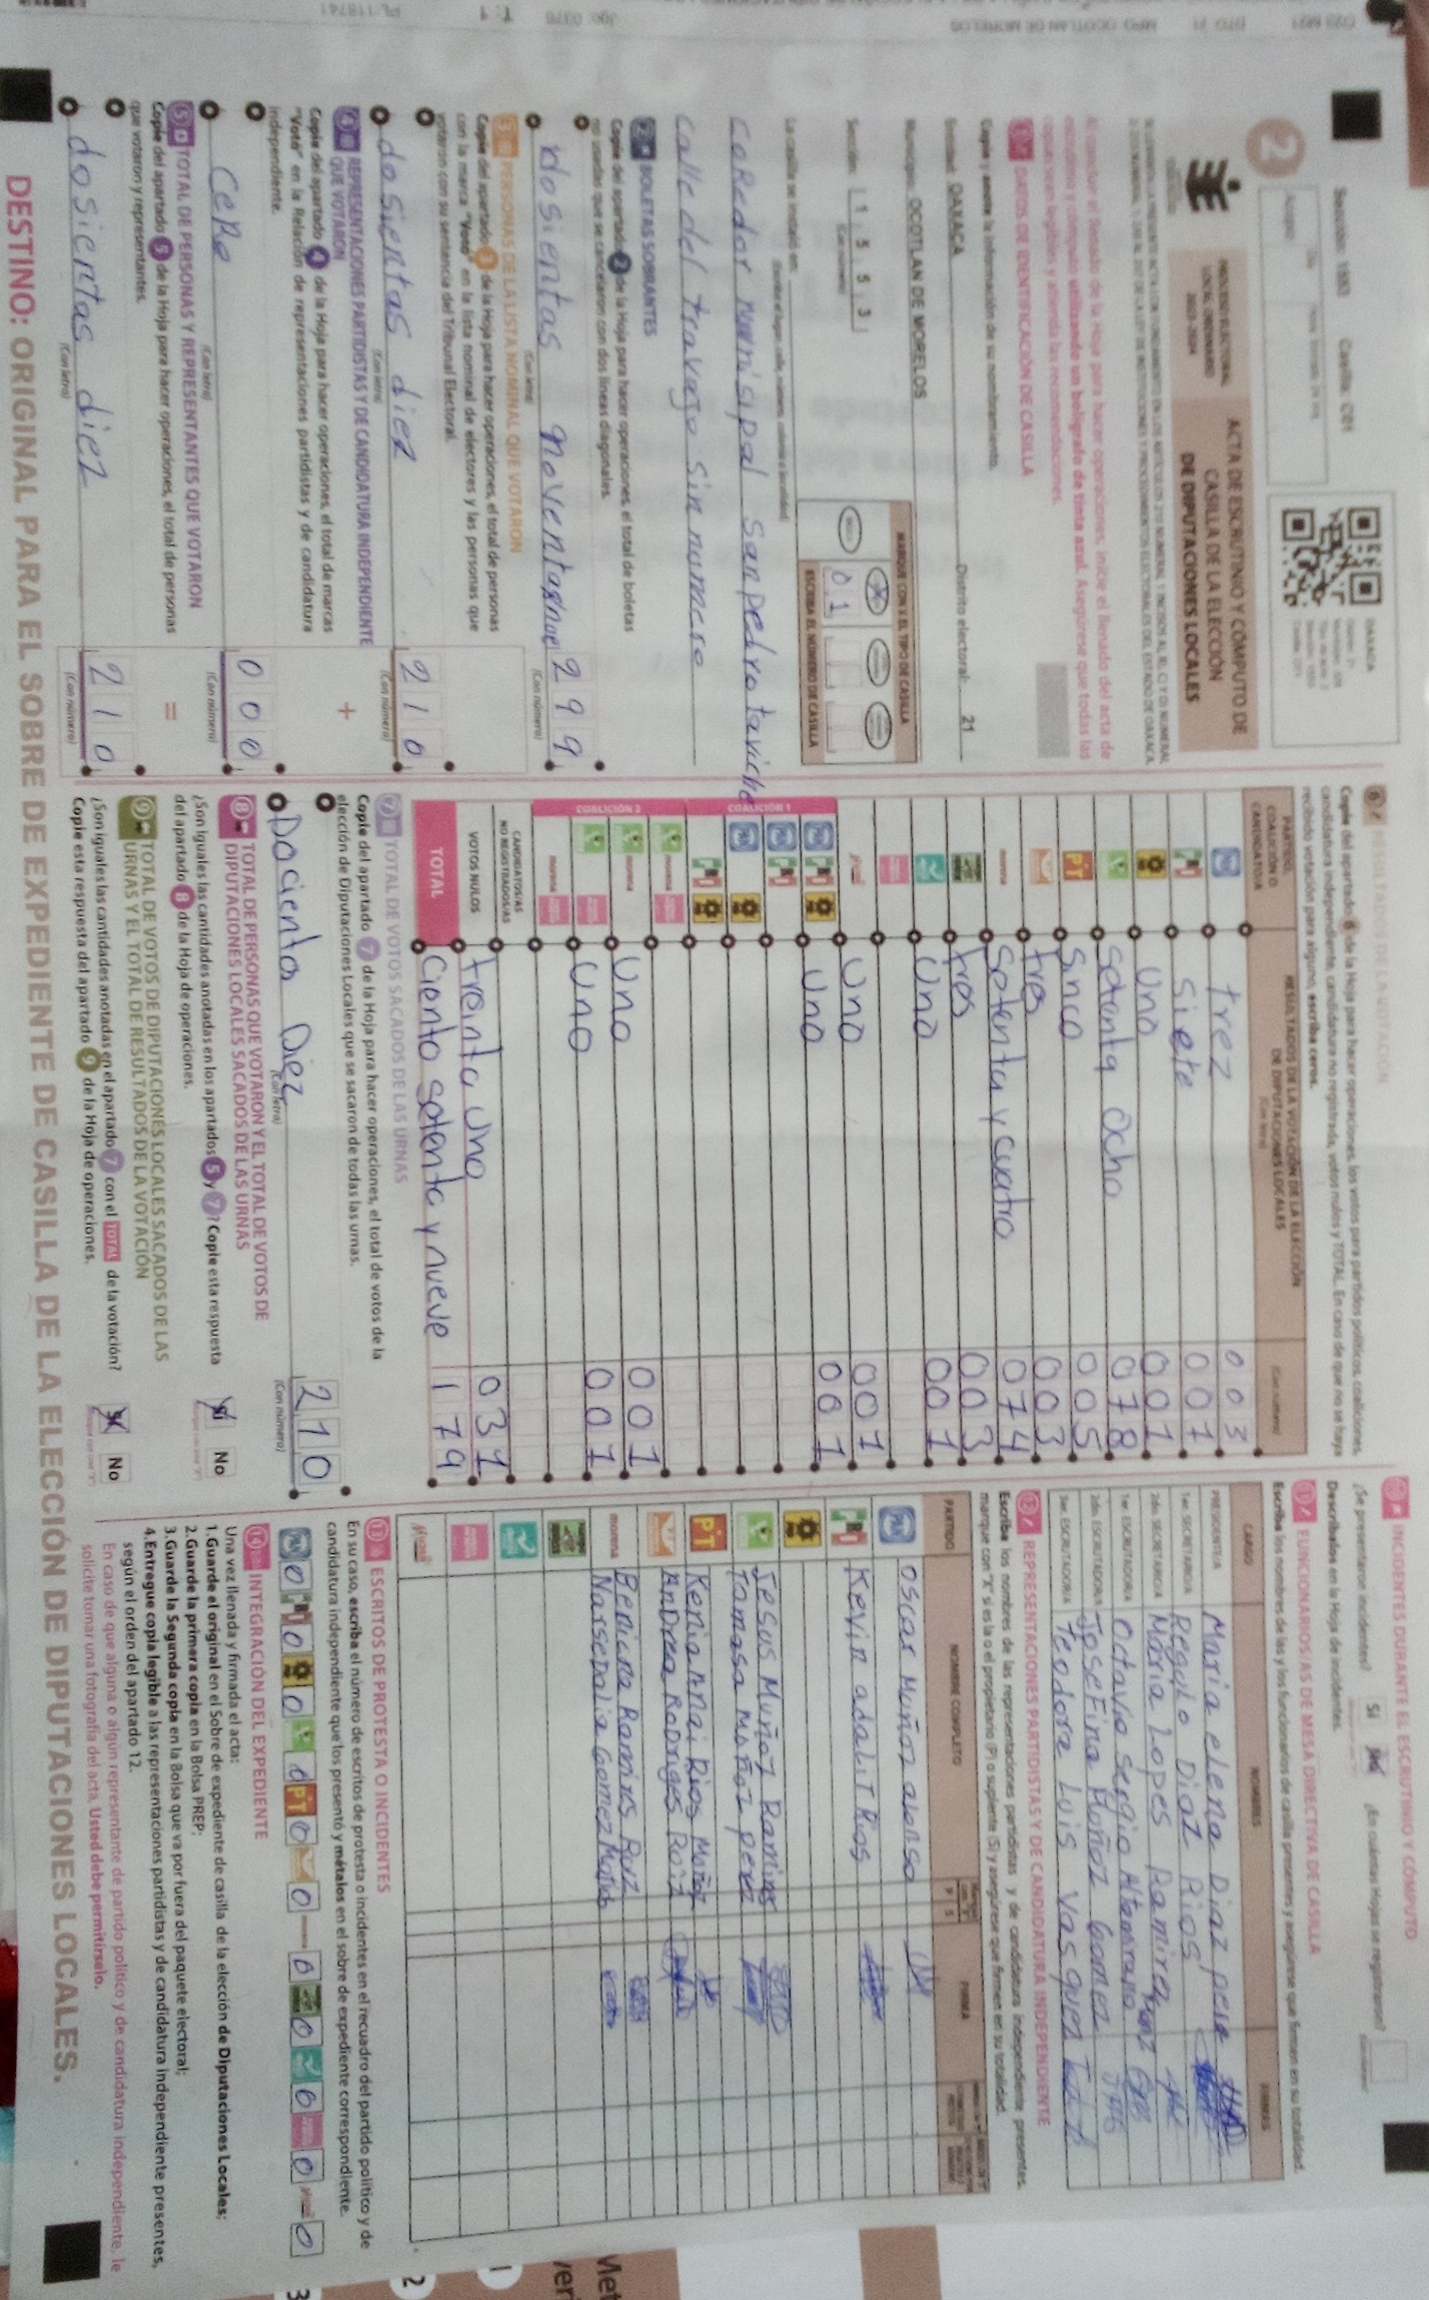 Sección: 1553 Casilla: C01
OAXACA
2
PROCESO ELECTORAL
LOCAL ORDINARIO
2023-2024
ACTA DE ESCRUTINIO Y CÓMPUTO DE
CASILLA DE LA ELECCIÓN
DE DIPUTACIONES LOCALES
Al concluir el llenado de la Hoja para hacer operaciones, inicie el llenado del acta de
escrutinio y cómputo utilizando un bolígrafo de tinta azul. Asegúrese que todas las
copias sean legibles y atienda las recomendaciones.
1 DATOS DE IDENTIFICACIÓN DE CASILLA
Copie y anote la información de su nombramiento.
Entidad: OAXACA Distrito electoral: 21
Municipio: OCOTLAN DE MORELOS
Sección: 1 5 5 3
MARQUE CON X EL TIPO DE CASILLA
0 1
ESCRIBA EL NÚMERO DE CASILLA
La casilla se instaló en:
Coredor municipal san pedro taviche
calle del travajo sin numero
2 BOLETAS SOBRANTES
Copie del apartado 2 de la Hoja para hacer operaciones, el total de boletas
no usadas que se cancelaron con dos líneas diagonales.
dosientas noventa nueve 299
(Con letra) (Con número)
3 PERSONAS DE LA LISTA NOMINAL QUE VOTARON
Copie del apartado 3 de la Hoja para hacer operaciones, el total de personas
con la marca "Votó" en la lista nominal de electores y las personas que
votaron con su sentencia del Tribunal Electoral.
dosientas diez 210
(Con letra) (Con número)
4 REPRESENTACIONES PARTIDISTAS Y DE CANDIDATURA INDEPENDIENTE
QUE VOTARON +
Copie del apartado 4 de la Hoja para hacer operaciones, el total de marcas
"Votó" en la Relación de representaciones partidistas y de candidatura
independiente.
cero 000
(Con letra) (Con número)
5 TOTAL DE PERSONAS Y REPRESENTANTES QUE VOTARON =
Copie del apartado 5 de la Hoja para hacer operaciones, el total de personas
que votaron y representantes.
dosientas diez 210
(Con letra) (Con número)
6 RESULTADOS DE LA VOTACIÓN
Copie del apartado 6 de la Hoja para hacer operaciones, los votos para partidos políticos, coaliciones,
candidatura independiente, candidatura no registrada, votos nulos y TOTAL. En caso de que no se haya
recibido votación para alguno, escriba ceros.
PARTIDO,
COALICIÓN O
CANDIDATURA
RESULTADOS DE LA VOTACIÓN DE LA ELECCIÓN
DE DIPUTACIONES LOCALES
(Con letra) (Con número)
trez 003
siete 007
uno 001
setenta ocho 078
PT sinco 005
tres 003
morena setenta y cuatro 074
tres 003
uno 001
uno 001
COALICIÓN 1
uno 001
COALICIÓN 2
morena
uno 001
uno 001
morena
CANDIDATOS/AS
NO REGISTRADOS/AS
VOTOS NULOS treinta uno 031
TOTAL Ciento setenta y nueve 179
7 TOTAL DE VOTOS SACADOS DE LAS URNAS
Copie del apartado 7 de la Hoja para hacer operaciones, el total de votos de la
elección de Diputaciones Locales que se sacaron de todas las urnas.
Docienta Diez 210
(Con letra) (Con número)
8 TOTAL DE PERSONAS QUE VOTARON Y EL TOTAL DE VOTOS DE
DIPUTACIONES LOCALES SACADOS DE LAS URNAS
¿Son iguales las cantidades anotadas en los apartados 5 y 7? Copie esta respuesta
del apartado 8 de la Hoja de operaciones.
Sí No
9 TOTAL DE VOTOS DE DIPUTACIONES LOCALES SACADOS DE LAS
URNAS Y EL TOTAL DE RESULTADOS DE LA VOTACIÓN
¿Son iguales las cantidades anotadas en el apartado 7 con el TOTAL de la votación?
Copie esta respuesta del apartado 9 de la Hoja de operaciones.
Sí No
INCIDENTES DURANTE EL ESCRUTINIO Y CÓMPUTO
¿Se presentaron incidentes? Sí No ¿En cuántas Hojas se registraron?
Descríbalos en la Hoja de incidentes.
11 FUNCIONARIOS/AS DE MESA DIRECTIVA DE CASILLA
Escriba los nombres de las y los funcionarios de casilla presentes y asegúrese que firmen en su totalidad.
CARGO NOMBRES FIRMAS
PRESIDENTE/A Maria elena Diaz
1er. SECRETARIO/A Regulo Diaz Rios
2do. SECRETARIO/A Maria Lopes Ramirez
1er. ESCRUTADOR/A Octavio sergio Altamirano
2do. ESCRUTADOR/A Josefina Muñoz Gomez
3er. ESCRUTADOR/A Teodora Luis Vasquez
12 REPRESENTACIONES PARTIDISTAS Y DE CANDIDATURA INDEPENDIENTE
Escriba los nombres de las representaciones partidistas y de candidatura independiente presentes,
marque con "X" si es la o el propietario (P) o suplente (S) y asegúrese que firmen en su totalidad.
PARTIDO NOMBRE COMPLETO FIRMA
oscar Muñoz alonso
Kevin adalit Rios
Jesus Muñoz Ramires
Tomasa Muñoz perez
PT Kenia anai Rios Muñoz
Andrea Rodriges Ruiz
morena Benicia Ramires Ruiz
Natsedalia Gomez
13 ESCRITOS DE PROTESTA O INCIDENTES
En su caso, escriba el número de escritos de protesta o incidentes en el recuadro del partido político y de
candidatura independiente que los presentó y métalos en el sobre de expediente correspondiente.
0 0 0 0 PT 0 0 0 0 0 0 0
14 INTEGRACIÓN DEL EXPEDIENTE
Una vez llenada y firmada el acta:
1.Guarde el original en el Sobre de expediente de casilla de la elección de Diputaciones Locales;
2.Guarde la primera copia en la Bolsa PREP;
3.Guarde la Segunda copia en la Bolsa que va por fuera del paquete electoral;
4.Entregue copia legible a las representaciones partidistas y de candidatura independiente presentes,
según el orden del apartado 12.
En caso de que alguna o algún representante de partido político y de candidatura independiente, le
solicite tomar una fotografía del acta, Usted debe permitírselo.
DESTINO: ORIGINAL PARA EL SOBRE DE EXPEDIENTE DE CASILLA DE LA ELECCIÓN DE DIPUTACIONES LOCALES.